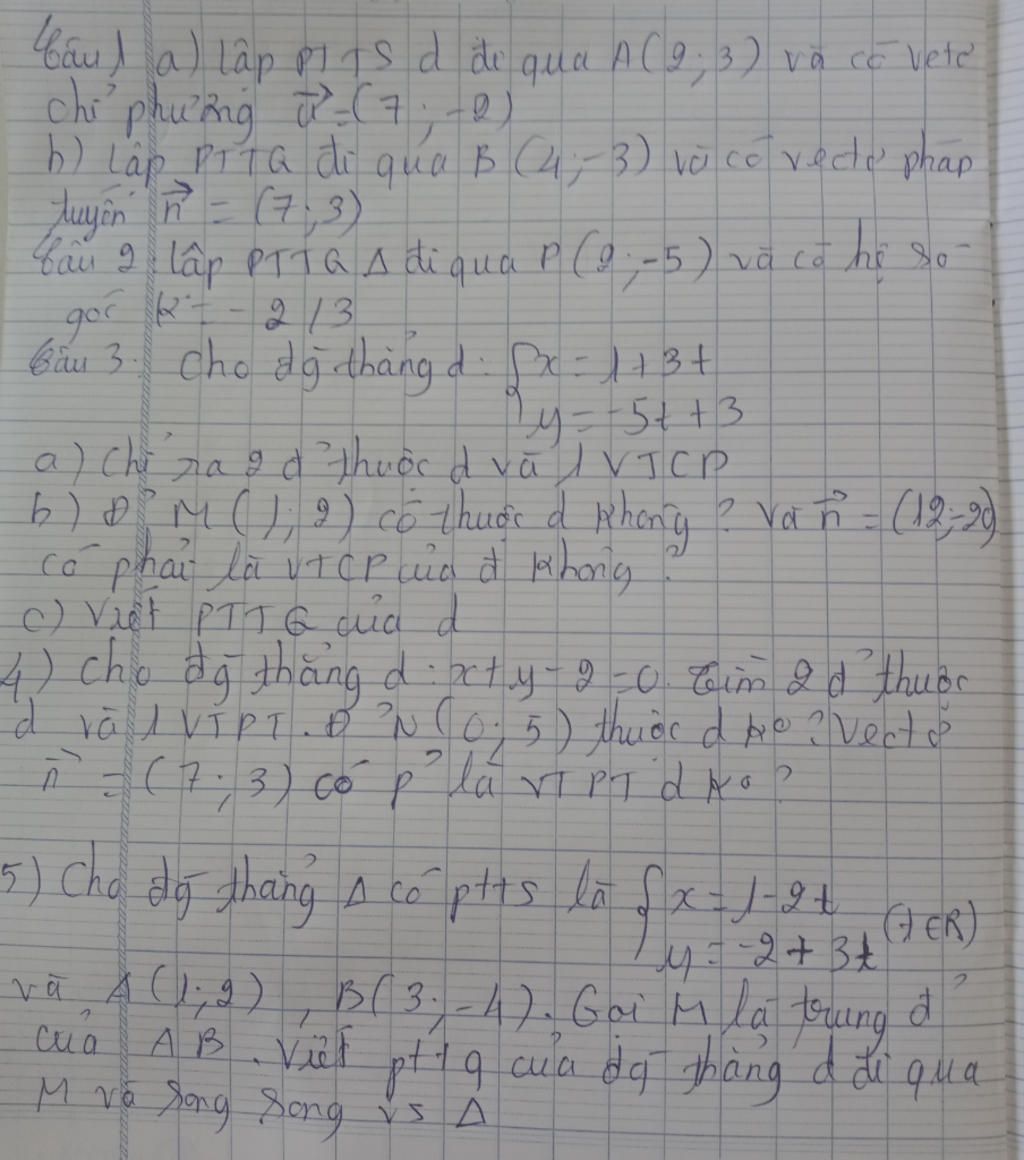 Câu 1 a) lập PTTS d đi qua A(2;3) và có vectơ
chỉ phương u⃗ = (7;-2)
b) Lập PTTQ đi qua B(4;-3) và có vectơ pháp
tuyến n⃗ = (7;3)
Câu 2 lập PTTQ Δ đi qua P(2;-5) và có hệ số
góc k = -2/3
Câu 3: Cho đg thẳng d: { x = 1+3t
y = -5t+3
a) Chỉ ra 2 đ' thuộc d và 1 VTCP
b) Đ' M(1;2) có thuộc d không? Và n⃗ = (12;-20)
có phải là VTCP của d không?
c) Viết PTTQ của d
4) Cho đg thẳng d: x+y-2=0. Tìm 2 đ' thuộc
d và 1 VTPT. Đ' N(0;5) thuộc d ko? Vectơ
n⃗ = (7;3) có p' là VTPT d ko?
5) Cho đg thẳng Δ có ptts là { x = 1-2t
y = -2+3t (t∈R)
và A(1;2), B(3;-4). Gọi M là trung đ'
của AB. Viết pttq của đg thẳng d đi qua
M và song song vs Δ